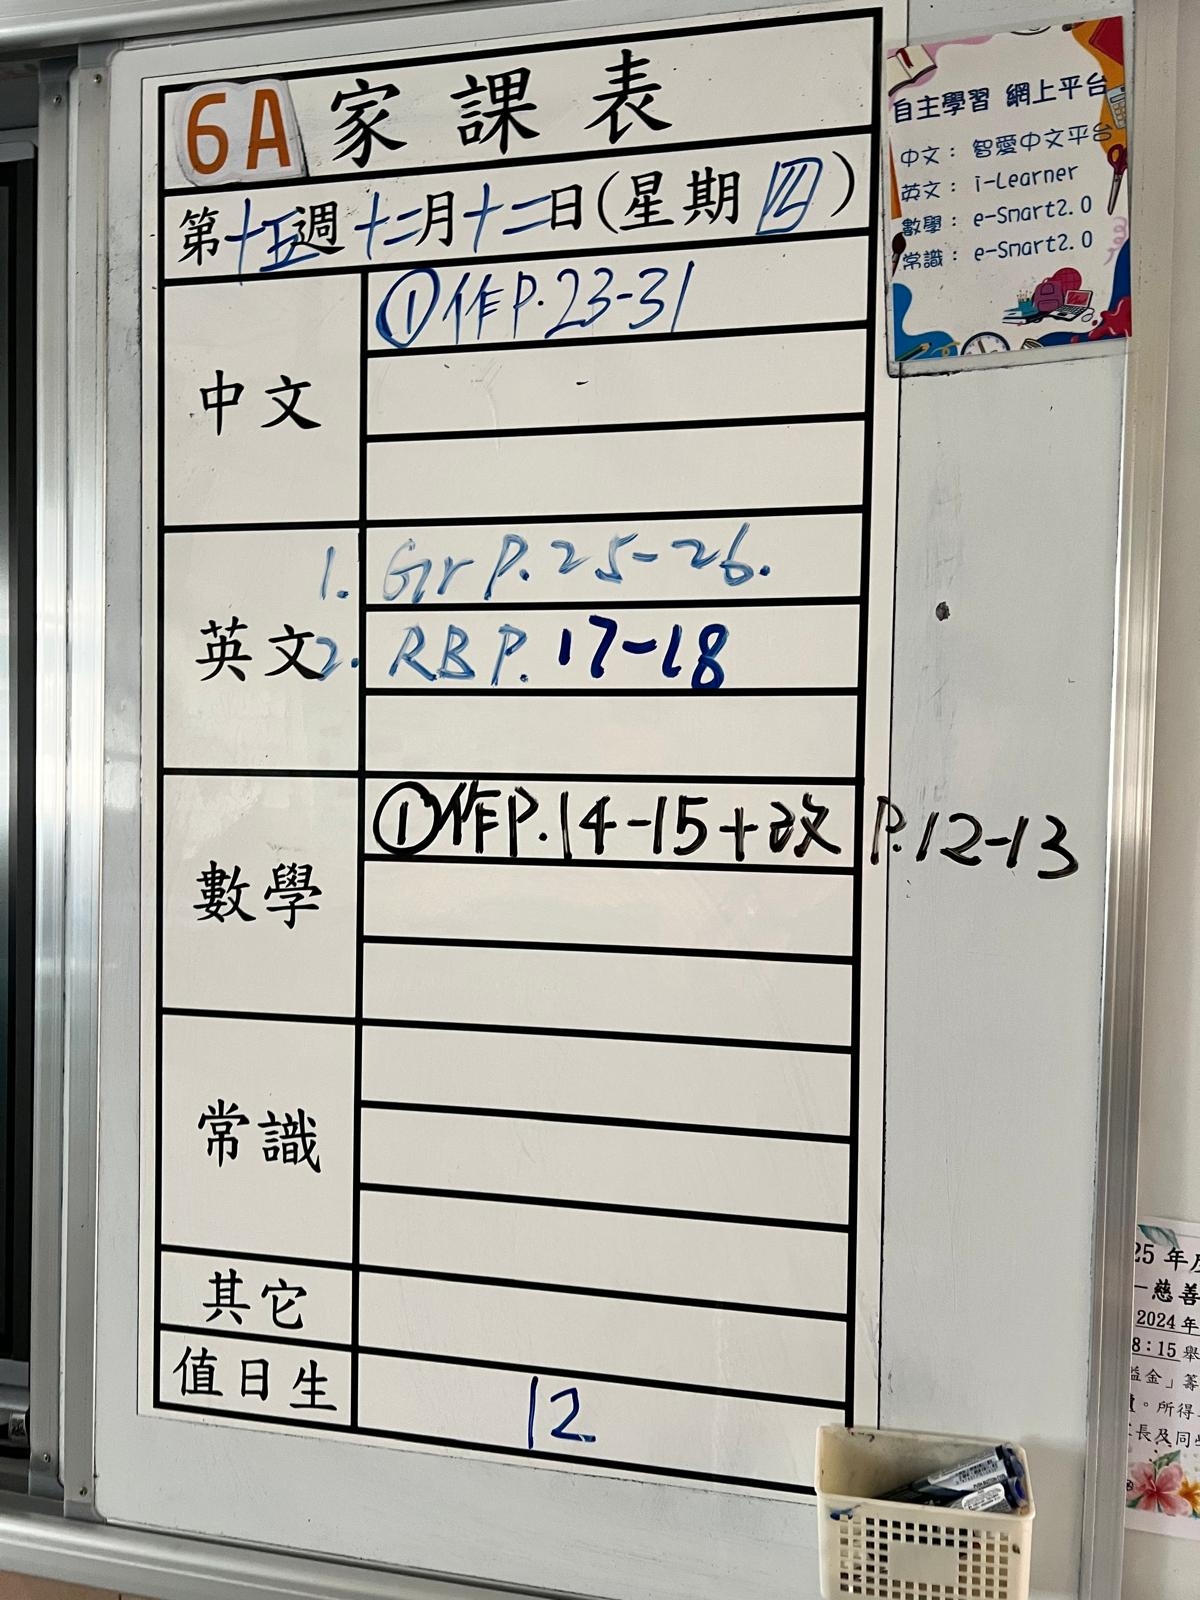 6A 家課表
第十五週十二月十二日(星期四)
中文
①作P.23-31
英文
1. Gr P.25-26.
2. RB P. 17-18
數學
①作P.14-15+改 P.12-13
常識
其它
值日生
12
自主學習 網上平台
中文： 智愛中文平台
英文： i-Learner
數學： e-Smart2.0
常識： e-Smart2.0
25 年
慈善
2024 年
8：15 舉
益金」籌
。所得
長及同